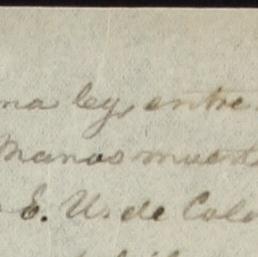 ma ley, entre
Manos muert
E. U. de Colo